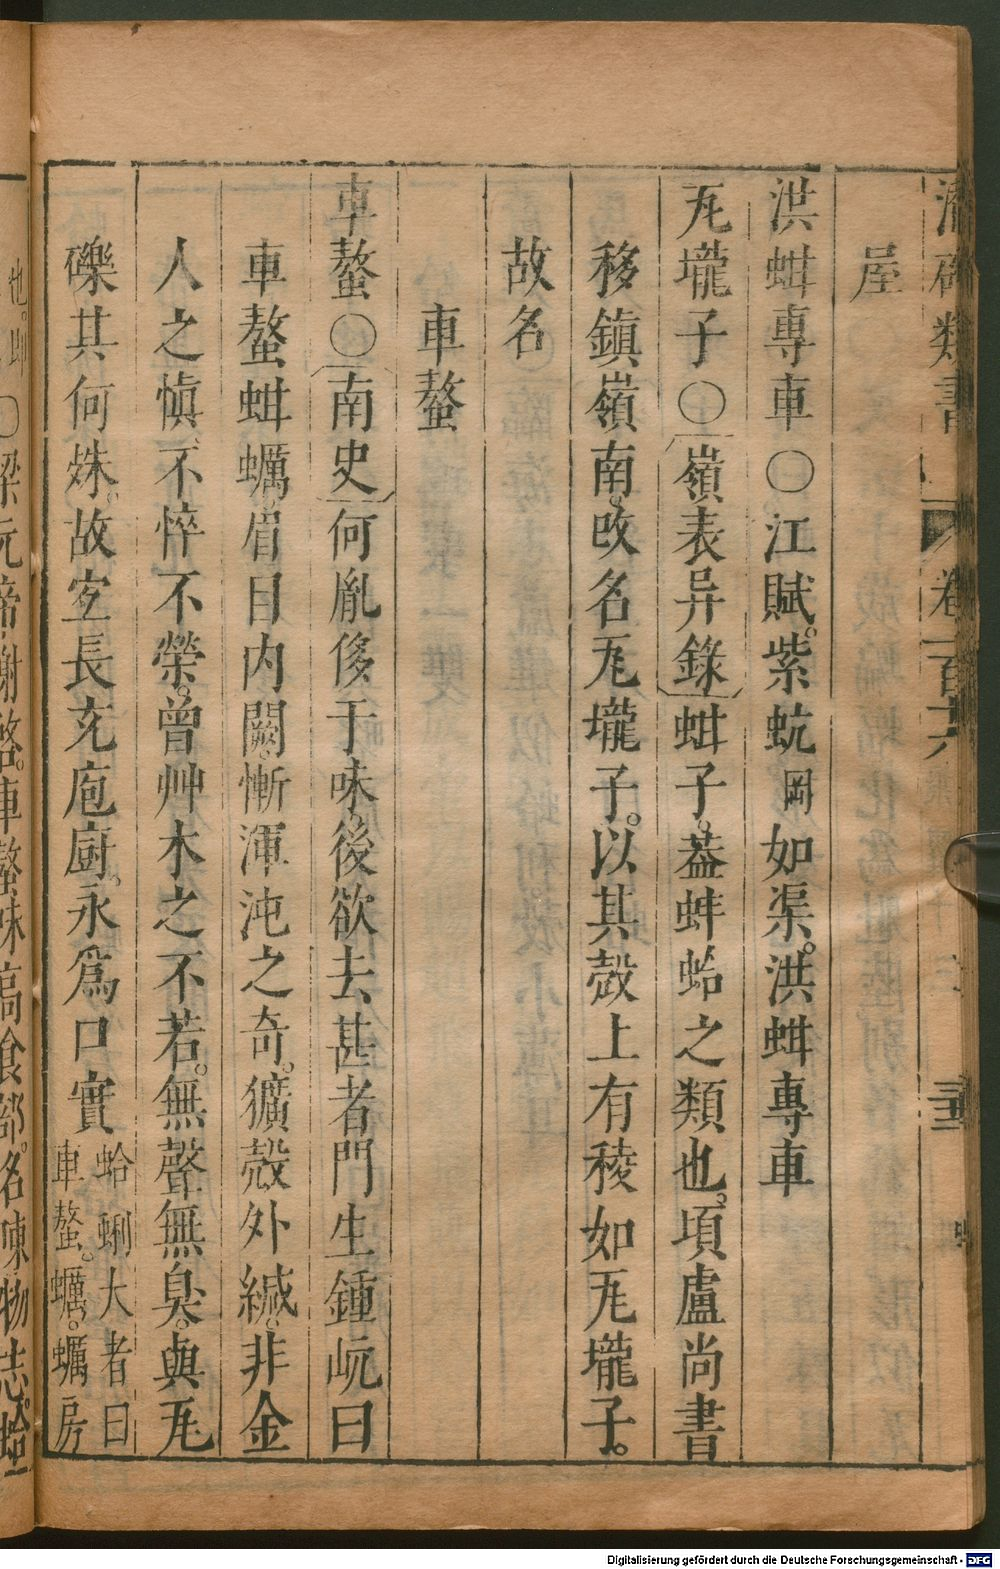 潛確類書 卷一百六
屋
洪蚶專車〇江賦。紫蚢岡如渠。洪蚶專車
瓦壠子〇嶺表异錄蚶子。葢蚌蛤之類也。項盧尚書
移鎮嶺南。改名瓦壠子。以其殻上有稜如瓦壠子。
故名
車螯
車螯〇南史何胤侈于味。後欲去甚者門生鍾岏曰
車螯蚶蠣。眉目内闕。慚渾沌之奇。獷殻外緘。非金
人之愼、不悴不榮。曾艸木之不若。無聲無臭。與瓦
礫其何殊。故宐長充庖廚。永爲口實
蛤蜊大者曰
車螯。蠣。蠣房
也。
〇梁元帝謝啓。車螯味高食部。名陳物志。蛤
Digitalisierung gefördert durch die Deutsche Forschungsgemeinschaft - DFG